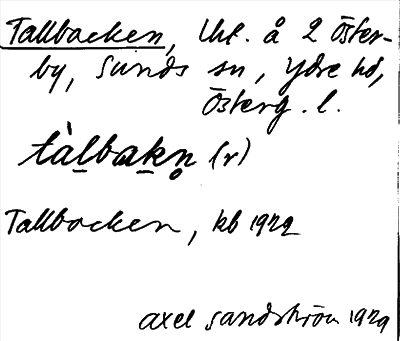 Tallbacken, lht. å 2 Öster-
by, Sunds sn, Ydre hd,
Österg. l.
tàlbakn̥ (r)
Tallbacken, kb 1922
Axel Sandström 1929